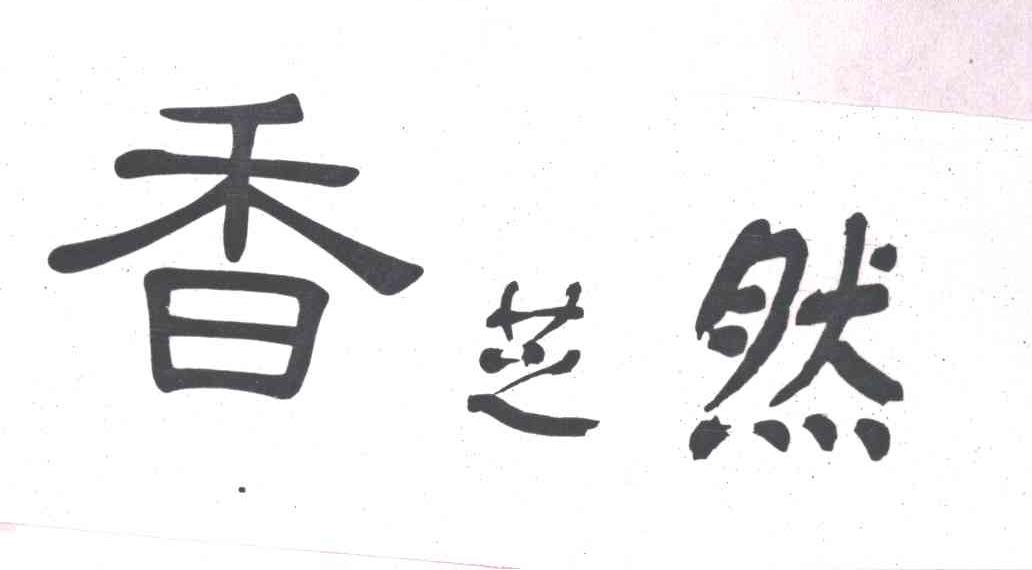 香芝然